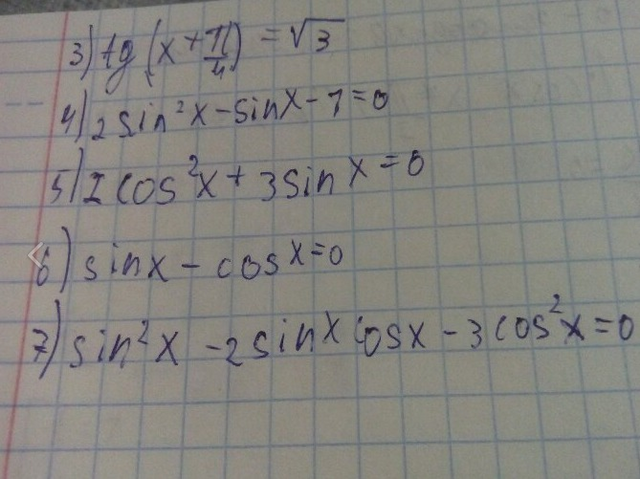 3) tg(x + π/4) = √3
4) 2 sin²x - sinx - 1 = 0
5) 2 cos²x + 3 sin x = 0
6) sinx - cosx = 0
7) sin²x - 2 sinx cosx - 3 cos²x = 0